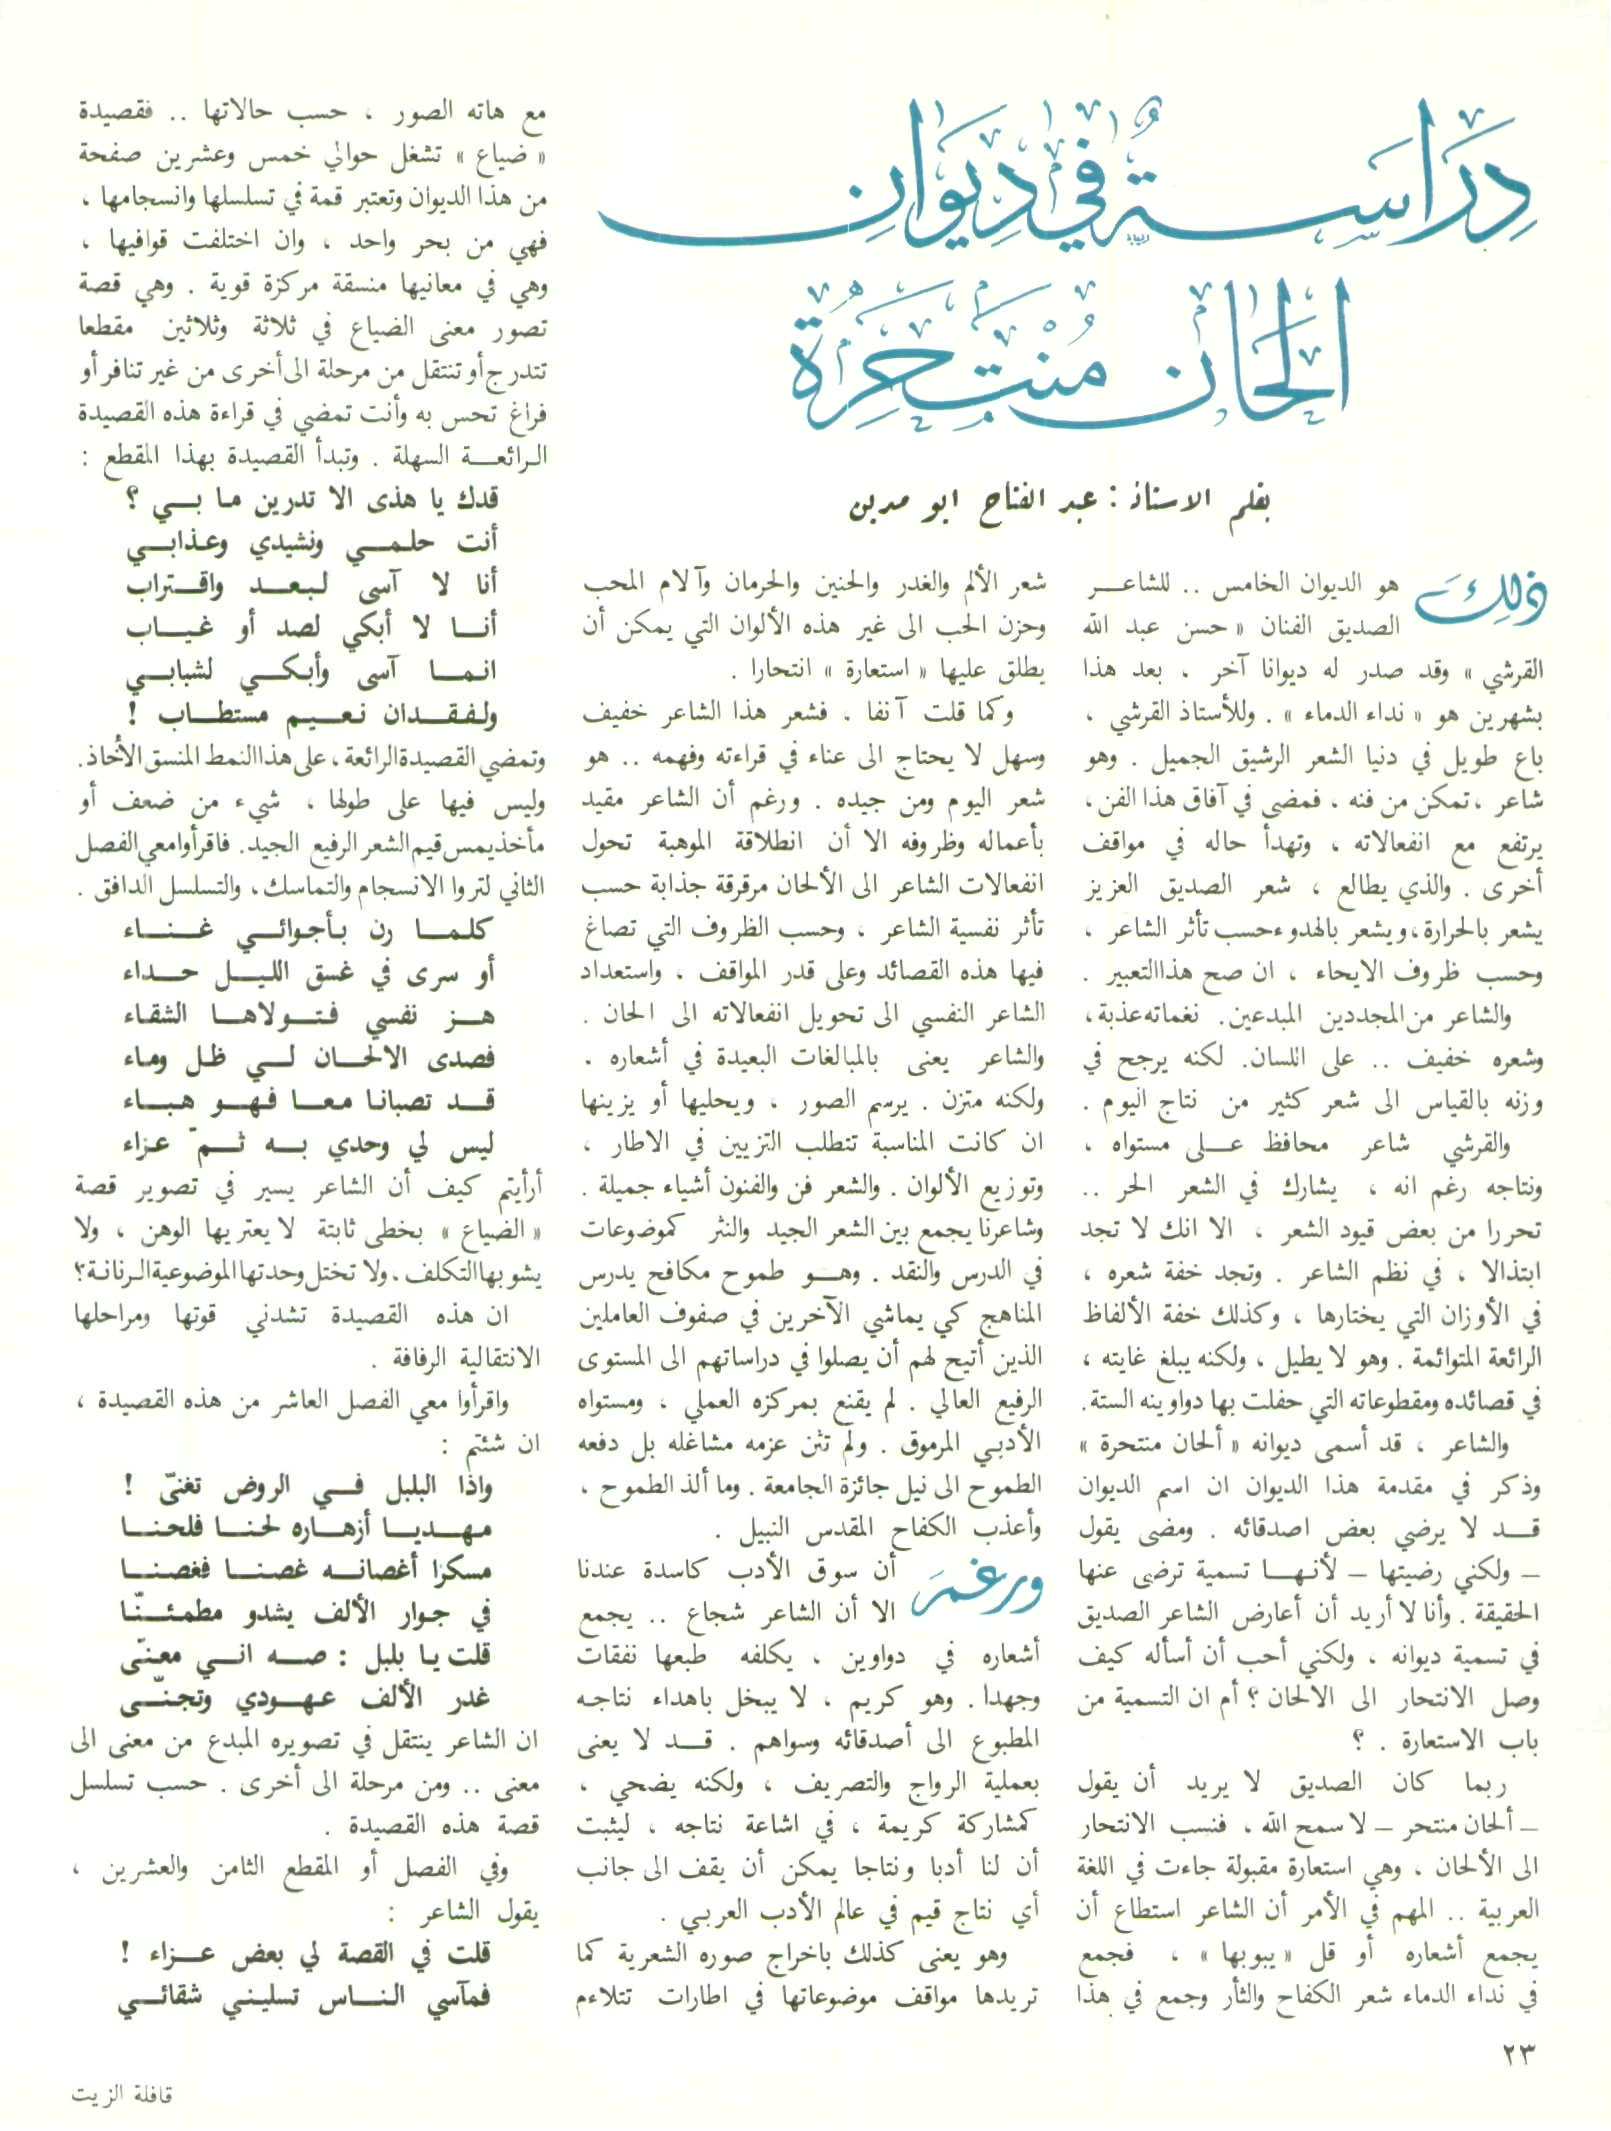 دِرَاسَةٌ في دِيوَانِ
أَلحَان مُنتَحِرَة
بقلم الاستاذ : عبد الفتاح ابو مدين
ذلِكَ هو الديوان الخامس .. للشاعر
الصديق الفنان « حسن عبد الله
القرشي » وقد صدر له ديوانا آخر ، بعد هذا
بشهرين هو « نداء الدماء » . وللأستاذ القرشي ،
باع طويل في دنيا الشعر الرشيق الجميل . وهو
شاعر ، تمكن من فنه ، فمضى في آفاق هذا الفن ،
يرتفع مع انفعالاته ، وتهدأ حاله في مواقف
أخرى . والذي يطالع ، شعر الصديق العزيز
يشعر بالحرارة ، ويشعر بالهدوء حسب تأثر الشاعر ،
وحسب ظروف الايحاء ، ان صح هذا التعبير .
والشاعر من المجددين المبدعين. نغماته عذبة ،
وشعره خفيف .. على اللسان. لكنه يرجح في
وزنه بالقياس الى شعر كثير من نتاج اليوم .
والقرشي شاعر محافظ على مستواه ،
ونتاجه رغم انه ، يشارك في الشعر الحر ..
تحررا من بعض قيود الشعر ، الا انك لا تجد
ابتذالا ، في نظم الشاعر . وتجد خفة شعره ،
في الأوزان التي يختارها ، وكذلك خفة الألفاظ
الرائعة المتوائمة . وهو لا يطيل ، ولكنه يبلغ غايته ،
في قصائده ومقطوعاته التي حفلت بها دواوينه الستة.
والشاعر ، قد أسمى ديوانه « ألحان منتحرة »
وذكر في مقدمة هذا الديوان ان اسم الديوان
قد لا يرضي بعض اصدقائه . ومضى يقول
– ولكني رضيتها – لأنها تسمية ترضى عنها
الحقيقة . وأنا لا أريد أن أعارض الشاعر الصديق
في تسمية ديوانه ، ولكني أحب أن أسأله كيف
وصل الانتحار الى الالحان ؟ أم ان التسمية من
باب الاستعارة . ؟
ربما كان الصديق لا يريد أن يقول
– ألحان منتحر – لا سمح الله ، فنسب الانتحار
الى الألحان ، وهي استعارة مقبولة جاءت في اللغة
العربية .. المهم في الأمر أن الشاعر استطاع أن
يجمع أشعاره أو قل « يبوبها » ، فجمع
في نداء الدماء شعر الكفاح والثأر وجمع في هذا
شعر الألم والغدر والحنين والحرمان وآلام المحب
وحزن الحب الى غير هذه الألوان التي يمكن أن
يطلق عليها « استعارة » انتحارا .
وكما قلت آنفا ، فشعر هذا الشاعر خفيف
وسهل لا يحتاج الى عناء في قراءته وفهمه .. هو
شعر اليوم ومن جيده . ورغم أن الشاعر مقيد
بأعماله وظروفه الا أن انطلاقة الموهبة تحول
انفعالات الشاعر الى الألحان مرقرقة جذابة حسب
تأثر نفسية الشاعر ، وحسب الظروف التي تصاغ
فيها هذه القصائد وعلى قدر المواقف ، واستعداد
الشاعر النفسي الى تحويل انفعالاته الى الحان .
والشاعر يعنى بالمبالغات البعيدة في أشعاره .
ولكنه متزن . يرسم الصور ، ويحليها أو يزينها
ان كانت المناسبة تتطلب التزيين في الاطار ،
وتوزيع الألوان . والشعر فن والفنون أشياء جميلة .
وشاعرنا يجمع بين الشعر الجيد والنثر كموضوعات
في الدرس والنقد . وهو طموح مكافح يدرس
المناهج كي يماشي الآخرين في صفوف العاملين
الذين أتيح لهم أن يصلوا في دراساتهم الى المستوى
الرفيع العالي . لم يقنع بمركزه العملي ، ومستواه
الأدبي المرموق . ولم تثن عزمه مشاغله بل دفعه
الطموح الى نيل جائزة الجامعة . وما ألذ الطموح ،
وأعذب الكفاح المقدس النبيل .
ورغمَ أن سوق الأدب كاسدة عندنا
الا أن الشاعر شجاع .. يجمع
أشعاره في دواوين ، يكلفه طبعها نفقات
وجهدا . وهو كريم ، لا يبخل باهداء نتاجه
المطبوع الى أصدقائه وسواهم . قد لا يعنى
بعملية الرواج والتصريف ، ولكنه يضحي ،
كمشاركة كريمة ، في اشاعة نتاجه ، ليثبت
أن لنا أدبا ونتاجا يمكن أن يقف الى جانب
أي نتاج قيم في عالم الأدب العربي .
وهو يعنى كذلك باخراج صوره الشعرية كما
تريدها مواقف موضوعاتها في اطارات تتلاءم
مع هاته الصور ، حسب حالاتها .. فقصيدة
« ضياع » تشغل حوالي خمس وعشرين صفحة
من هذا الديوان وتعتبر قمة في تسلسلها وانسجامها ،
فهي من بحر واحد ، وان اختلفت قوافيها ،
وهي في معانيها منسقة مركزة قوية . وهي قصة
تصور معنى الضياع في ثلاثة وثلاثين مقطعا
تتدرج أو تنتقل من مرحلة الى أخرى من غير تنافر أو
فراغ تحس به وأنت تمضي في قراءة هذه القصيدة
الرائعة السهلة . وتبدأ القصيدة بهذا المقطع :
قدك يا هذى الا تدرين ما بي ؟
أنت حلمي ونشيدي وعذابي
أنا لا آسى لبعد واقتراب
أنا لا أبكي لصد أو غياب
انما آسى وأبكي لشبابي
ولفقدان نعيم مستطاب !
وتمضي القصيدة الرائعة ، على هذا النمط المنسق الأخاذ.
وليس فيها على طولها ، شيء من ضعف أو
مأخذ يمس قيم الشعر الرفيع الجيد. فاقرأوا معي الفصل
الثاني لتروا الانسجام والتماسك ، والتسلسل الدافق .
كلما رن بأجوائي غناء
أو سرى في غسق الليل حداء
هز نفسي فتولاها الشقاء
فصدى الالحان لي ظل وماء
قد تصبانا معا فهو هباء
ليس لي وحدي به ثمّ عزاء
أرأيتم كيف أن الشاعر يسير في تصوير قصة
« الضياع » بخطى ثابتة لا يعتريها الوهن ، ولا
يشوبها التكلف ، ولا تختل وحدتها الموضوعية الرنانة؟
ان هذه القصيدة تشدني قوتها ومراحلها
الانتقالية الرفافة .
واقرأوا معي الفصل العاشر من هذه القصيدة ،
ان شئتم :
واذا البلبل في الروض تغنّى !
مهديا أزهاره لحنا فلحنا
مسكرا أغصانه غصنا فغصنا
في جوار الألف يشدو مطمئنّا
قلت يا بلبل : صه اني معنّى
غدر الألف عهودي وتجنّى
ان الشاعر ينتقل في تصويره المبدع من معنى الى
معنى .. ومن مرحلة الى أخرى . حسب تسلسل
قصة هذه القصيدة .
وفي الفصل أو المقطع الثامن والعشرين ،
يقول الشاعر :
قلت في القصة لي بعض عزاء !
فمآسي الناس تسليني شقائي
٢٣
قافلة الزيت